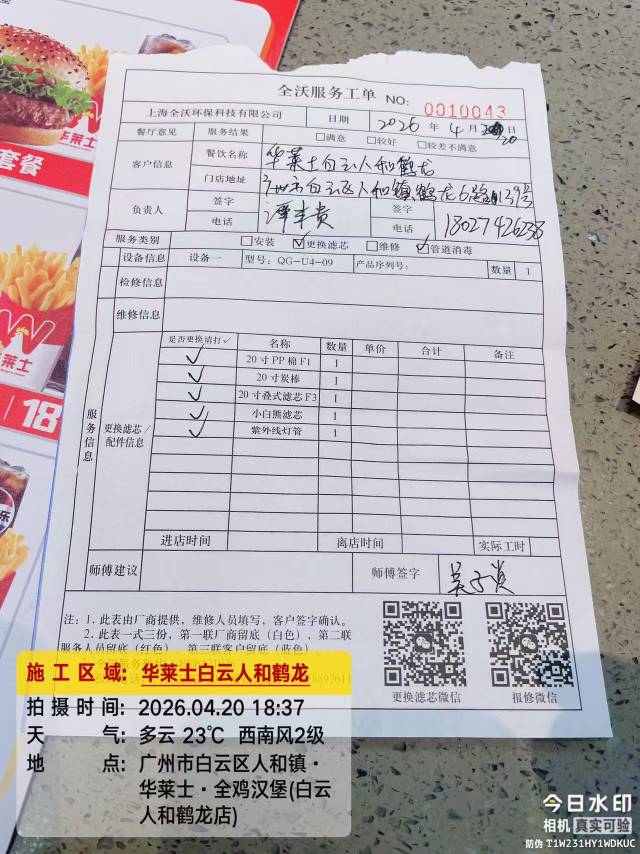 套餐
莱士
18
全沃服务工单 NO: 0010043
上海全沃环保科技有限公司 日期 2026 年 4 月 20 日
餐厅意见 服务结果 □满意 □较好 □较差不满意
客户信息 餐饮名称 华莱士白云人和鹤龙
门店地址 广州市白云区人和镇鹤龙6路139号
负责人 签字 签字
电话 谭丰贵 电话 18027426238
服务类别 □安装 ☑更换滤芯 □维修 ☑管道消毒
设备信息 设备一 型号: QG-U4-09 产品序列号: 数量 1
检修信息
维修信息
服务信息
更换滤芯/配件信息
是否更换请打✓ 名称 数量 单价 合计 备注
✓ 20寸PP棉F1 1
✓ 20寸炭棒 1
✓ 20寸叠式滤芯F3 1
✓ 小白熊滤芯 1
✓ 紫外线灯管 1
进店时间 离店时间 实际工时
师傅建议 师傅签字
注: 1. 此表由厂商提供, 维修人员填写, 客户签字确认。
2. 此表一式三份, 第一联厂商留底(白色), 第二联
服务人员留底(红色), 第三联客户留底(蓝色),
更换滤芯微信 报修微信
施工区域: 华莱士白云人和鹤龙
拍摄时间: 2026.04.20 18:37
天气: 多云 23℃ 西南风2级
地点: 广州市白云区人和镇·
华莱士·全鸡汉堡(白云
人和鹤龙店)
今日水印
相机 真实可验
防伪 T1W231HY1WDKUC